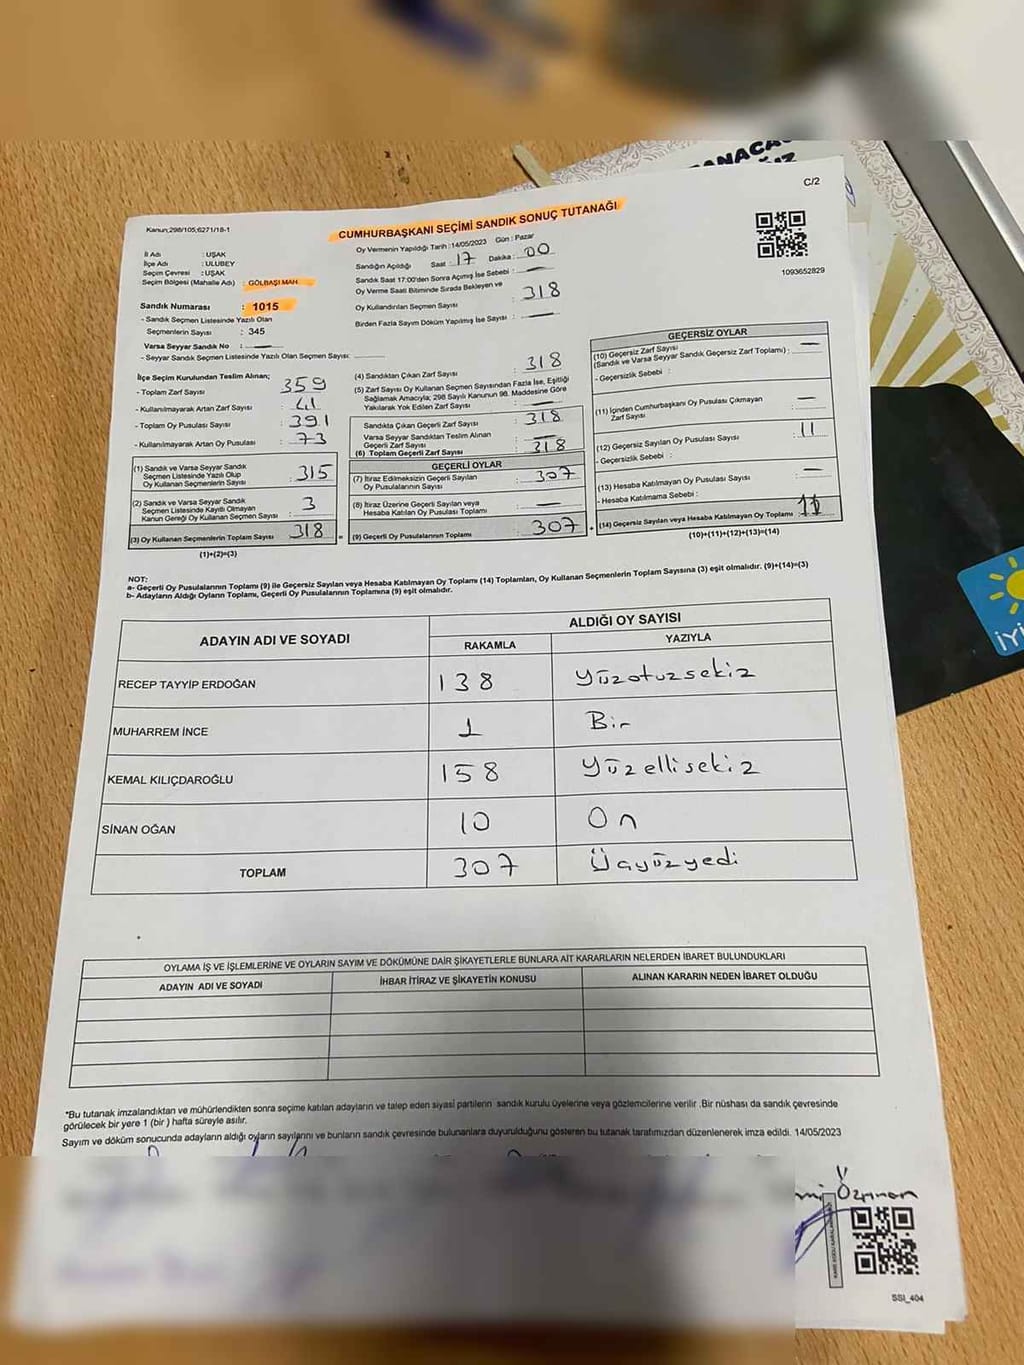 ANACA
C/2
Kanun;298/105;6271/18-1
CUMHURBAŞKANI SEÇİMİ SANDIK SONUÇ TUTANAĞI
1093652829
İl Adı : UŞAK
İlçe Adı : ULUBEY
Seçim Çevresi : UŞAK
Seçim Bölgesi (Mahalle Adı) : GÖLBAŞI MAH.
Sandık Numarası : 1015
- Sandık Seçmen Listesinde Yazılı Olan
Seçmenlerin Sayısı : 345
Varsa Seyyar Sandık No :
- Seyyar Sandık Seçmen Listesinde Yazılı Olan Seçmen Sayısı:
Oy Vermenin Yapıldığı Tarih :14/05/2023 Gün : Pazar
Sandığın Açıldığı Saat : 17 Dakika : 00
Sandık Saat 17:00'den Sonra Açımış İse Sebebi :
Oy Verme Saati Bitiminde Sırada Bekleyen ve
Oy Kullandırılan Seçmen Sayısı : 318
Birden Fazla Sayım Döküm Yapılmış İse Sayısı :
İlçe Seçim Kurulundan Teslim Alınan;
- Toplam Zarf Sayısı : 359
- Kullanılmayarak Artan Zarf Sayısı : 41
- Toplam Oy Pusulası Sayısı : 391
- Kullanılmayarak Artan Oy Pusulası : 73
(1) Sandık ve Varsa Seyyar Sandık
Seçmen Listesinde Yazılı Olup
Oy Kullanan Seçmenlerin Sayısı : 315
(2) Sandık ve Varsa Seyyar Sandık
Seçmen Listesinde Kayıtlı Olmayan
Kanun Gereği Oy Kullanan Seçmen Sayısı : 3
(3) Oy Kullanan Seçmenlerin Toplam Sayısı 318
(1)+(2)=(3)
(4) Sandıktan Çıkan Zarf Sayısı : 318
(5) Zarf Sayısı Oy Kullanan Seçmen Sayısından Fazla İse, Eşitliği
Sağlamak Amacıyla; 298 Sayılı Kanunun 98. Maddesine Göre
Yakılarak Yok Edilen Zarf Sayısı :
Sandıkta Çıkan Geçerli Zarf Sayısı : 318
Varsa Seyyar Sandıktan Teslim Alınan
Geçerli Zarf Sayısı :
(6) Toplam Geçerli Zarf Sayısı : 318
GEÇERLİ OYLAR
(7) İtiraz Edilmeksizin Geçerli Sayılan
Oy Pusulalarının Sayısı : 307
(8) İtiraz Üzerine Geçerli Sayılan veya
Hesaba Katılan Oy Pusulası Toplamı :
= (9) Geçerli Oy Pusulalarının Toplamı : 307
GEÇERSİZ OYLAR
(10) Geçersiz Zarf Sayısı
(Sandık ve Varsa Seyyar Sandık Geçersiz Zarf Toplamı) :
- Geçersizlik Sebebi :
(11) İçinden Cumhurbaşkanı Oy Pusulası Çıkmayan
Zarf Sayısı :
(12) Geçersiz Sayılan Oy Pusulası Sayısı : 11
- Geçersizlik Sebebi :
(13) Hesaba Katılmayan Oy Pusulası Sayısı :
- Hesaba Katılmama Sebebi :
+ (14) Geçersiz Sayılan veya Hesaba Katılmayan Oy Toplamı 11
(10)+(11)+(12)+(13)=(14)
NOT:
a- Geçerli Oy Pusulalarının Toplamı (9) ile Geçersiz Sayılan veya Hesaba Katılmayan Oy Toplamı (14) Toplamları, Oy Kullanan Seçmenlerin Toplam Sayısına (3) eşit olmalıdır. (9)+(14)=(3)
b- Adayların Aldığı Oyların Toplamı, Geçerli Oy Pusulalarının Toplamına (9) eşit olmalıdır.
ADAYIN ADI VE SOYADI ALDIĞI OY SAYISI
RAKAMLA YAZIYLA
RECEP TAYYİP ERDOĞAN 138 Yüzotuzsekiz
MUHARREM İNCE 1 Bir
KEMAL KILIÇDAROĞLU 158 Yüzellisekiz
SİNAN OĞAN 10 On
TOPLAM 307 Üçyüzyedi
OYLAMA İŞ VE İŞLEMLERİNE VE OYLARIN SAYIM VE DÖKÜMÜNE DAİR ŞİKAYETLERLE BUNLARA AİT KARARLARIN NELERDEN İBARET BULUNDUKLARI
ADAYIN ADI VE SOYADI İHBAR İTİRAZ VE ŞİKAYETİN KONUSU ALINAN KARARIN NEDEN İBARET OLDUĞU
*Bu tutanak imzalandıktan ve mühürlendikten sonra seçime katılan adayların ve talep eden siyasî partilerin sandık kurulu üyelerine veya gözlemcilerine verilir .Bir nüshası da sandık çevresinde
görülecek bir yere 1 (bir ) hafta süreyle asılır.
Sayım ve döküm sonucunda adayların aldığı oyların sayılarını ve bunların sandık çevresinde bulunanlara duyurulduğunu gösteren bu tutanak tarafımızdan düzenlenerek imza edildi. 14/05/2023
SSI_404
İYİ